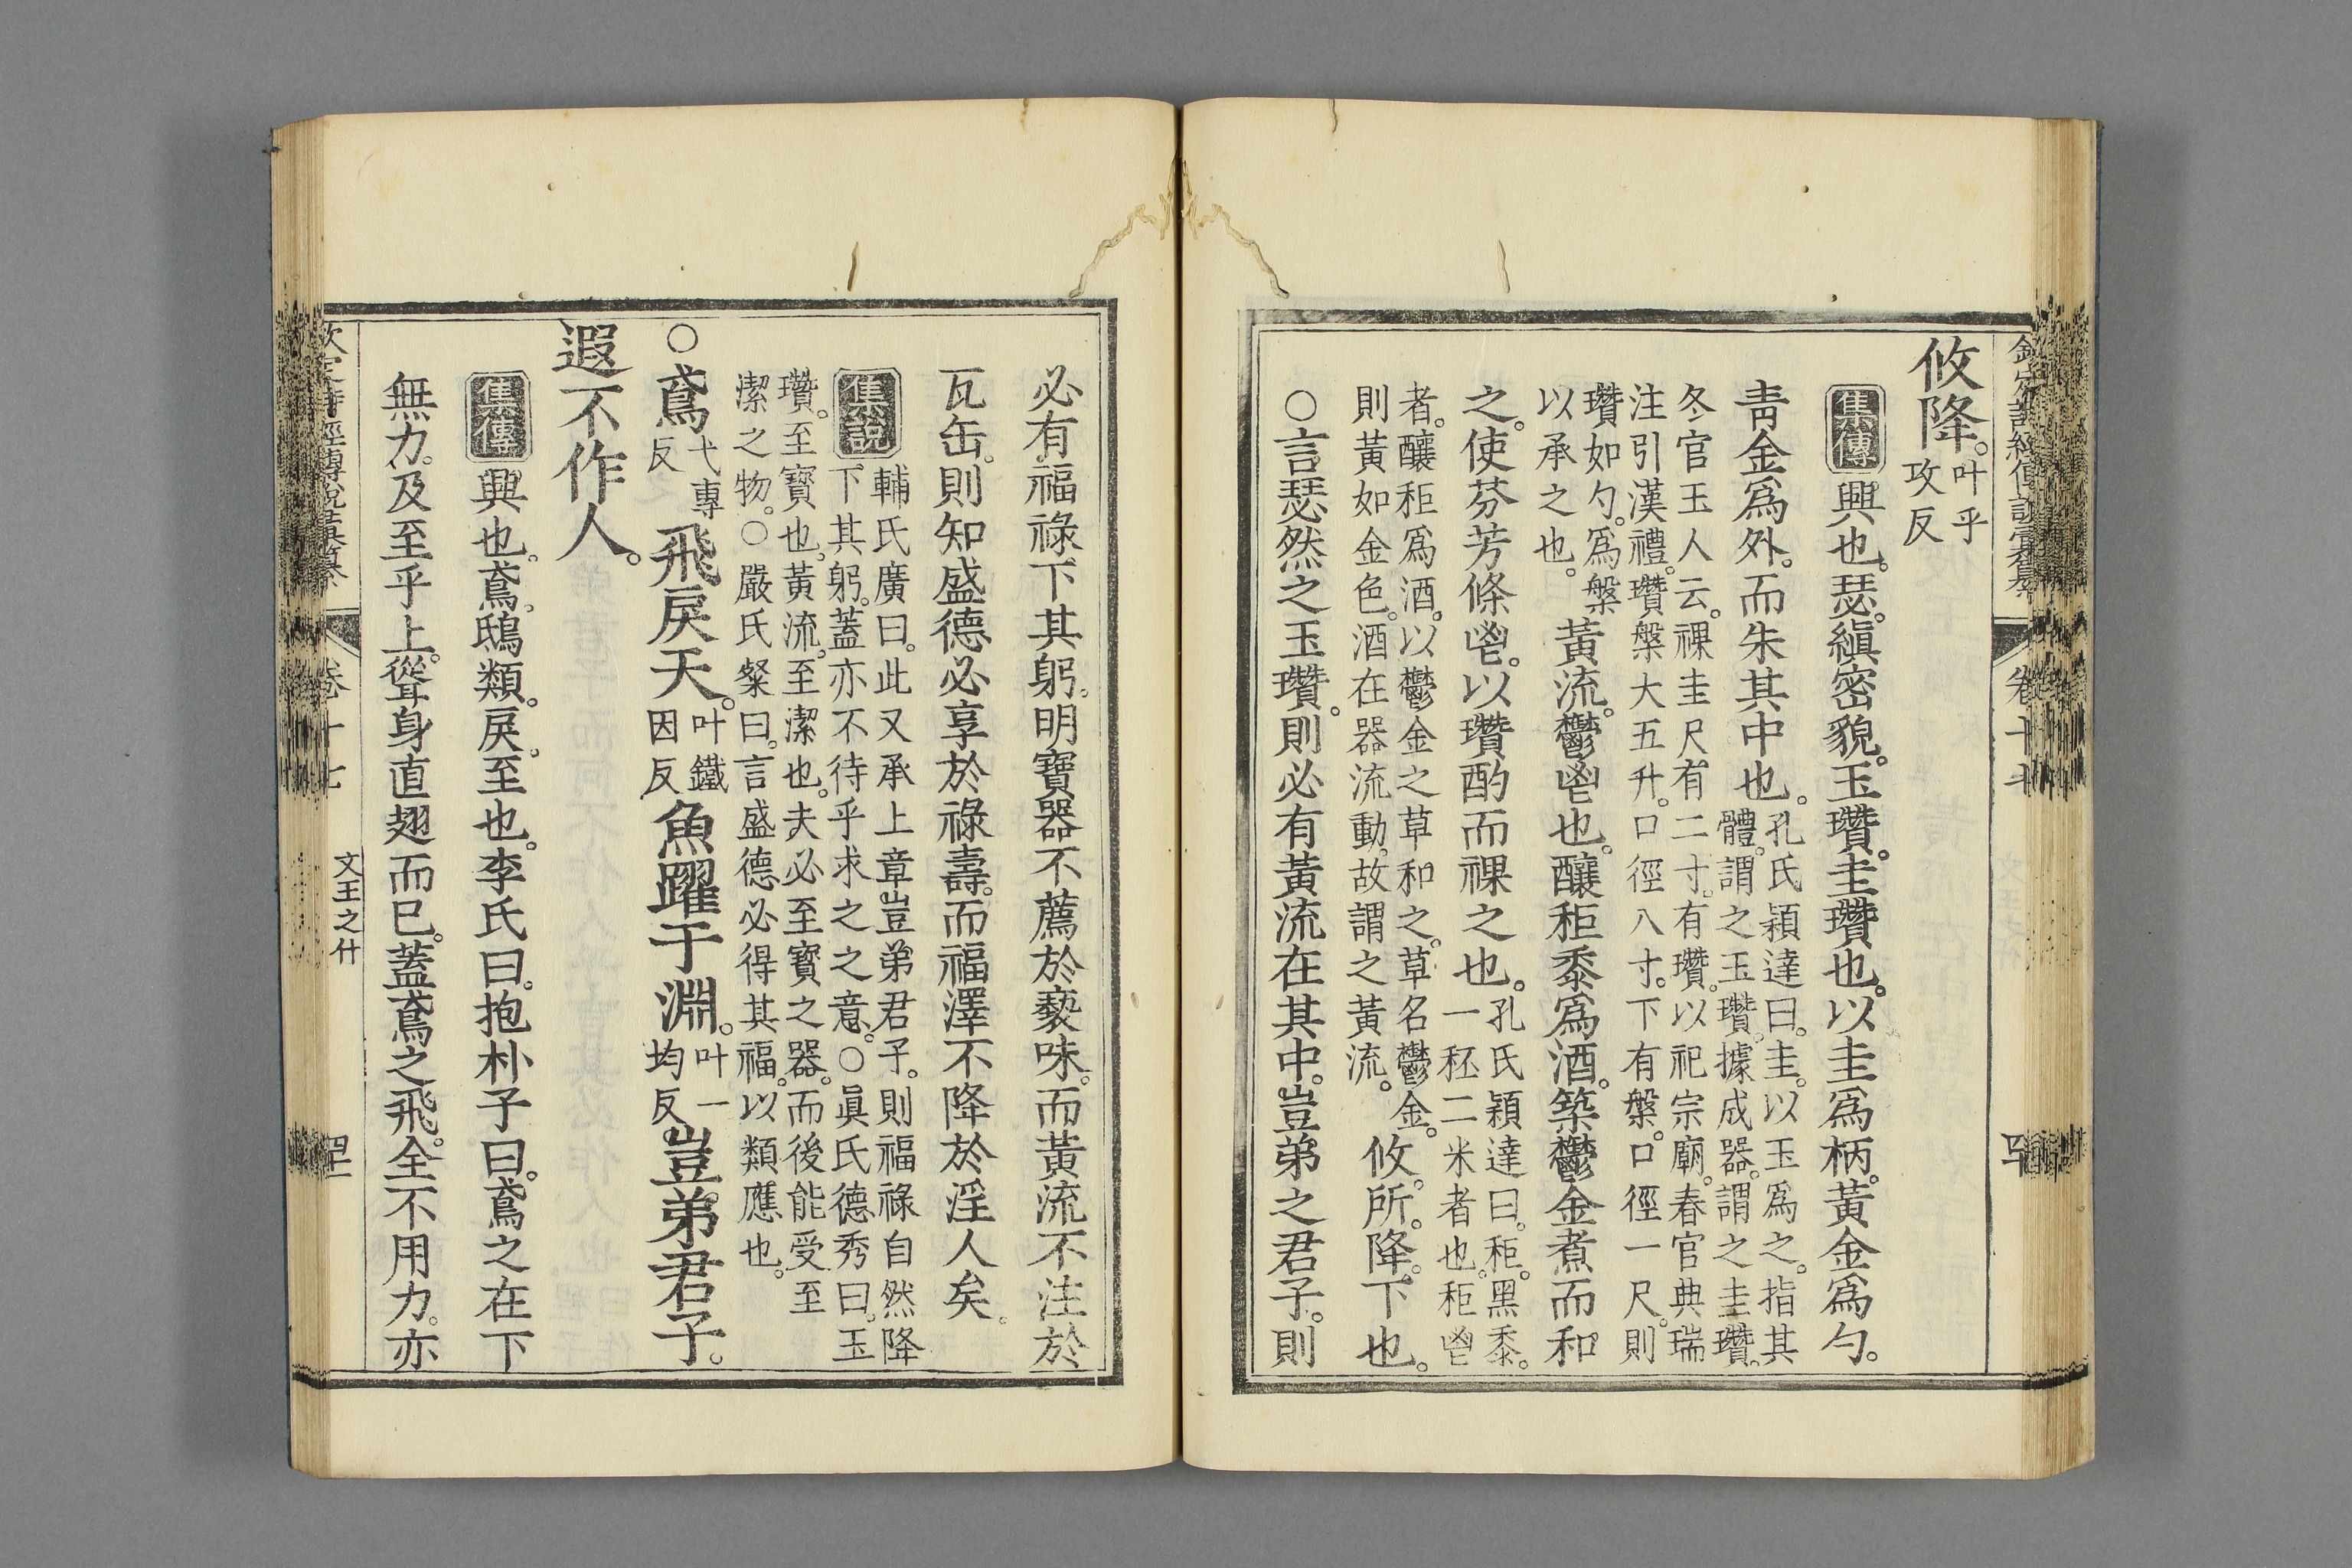 攸降。叶乎
攻反
集傳興也。瑟。縝密貌。玉瓚。圭瓚也。以圭爲柄。黃金爲勺。
青金爲外。而朱其中也。孔氏穎達曰。圭。以玉爲之。指其
體。謂之玉瓚。據成器。謂之圭瓚。
冬官玉人云。祼圭尺有二寸。有瓚。以祀宗廟。春官典瑞
注引漢禮。瓚槃大五升。口徑八寸。下有槃。口徑一尺。則
瓚如勺。爲槃
以承之也。黃流。鬱鬯也。釀秬黍爲酒。築鬱金煮而和
之。使芬芳條鬯。以瓚酌而祼之也。孔氏穎達曰。秬。黑黍。
一秠二米者也。秬鬯
者。釀秬爲酒。以鬱金之草和之。草名鬱金。
則黃如金色。酒在器流動。故謂之黃流。攸。所。降。下也。
○言瑟然之玉瓚。則必有黃流在其中。豈弟之君子。則
必有福祿下其躬。明寶器不薦於褻味。而黃流不注於
瓦缶。則知盛德必享於祿壽。而福澤不降於淫人矣。
集說輔氏廣曰。此又承上章豈弟君子。則福祿自然降
下其躬。蓋亦不待乎求之之意。○眞氏德秀曰。玉
瓚。至寶也。黃流。至潔也。夫必至寶之器。而後能受至
潔之物。○嚴氏粲曰。言盛德必得其福。以類應也。
○鳶弋專
反飛戾天。叶鐵
因反魚躍于淵。叶一
均反豈弟君子。
遐不作人。
集傳興也。鳶。鴟類。戾。至也。李氏曰。抱朴子曰。鳶之在下
無力。及至乎上。聳身直翅而已。蓋鳶之飛。全不用力。亦
卷十七
文王之什